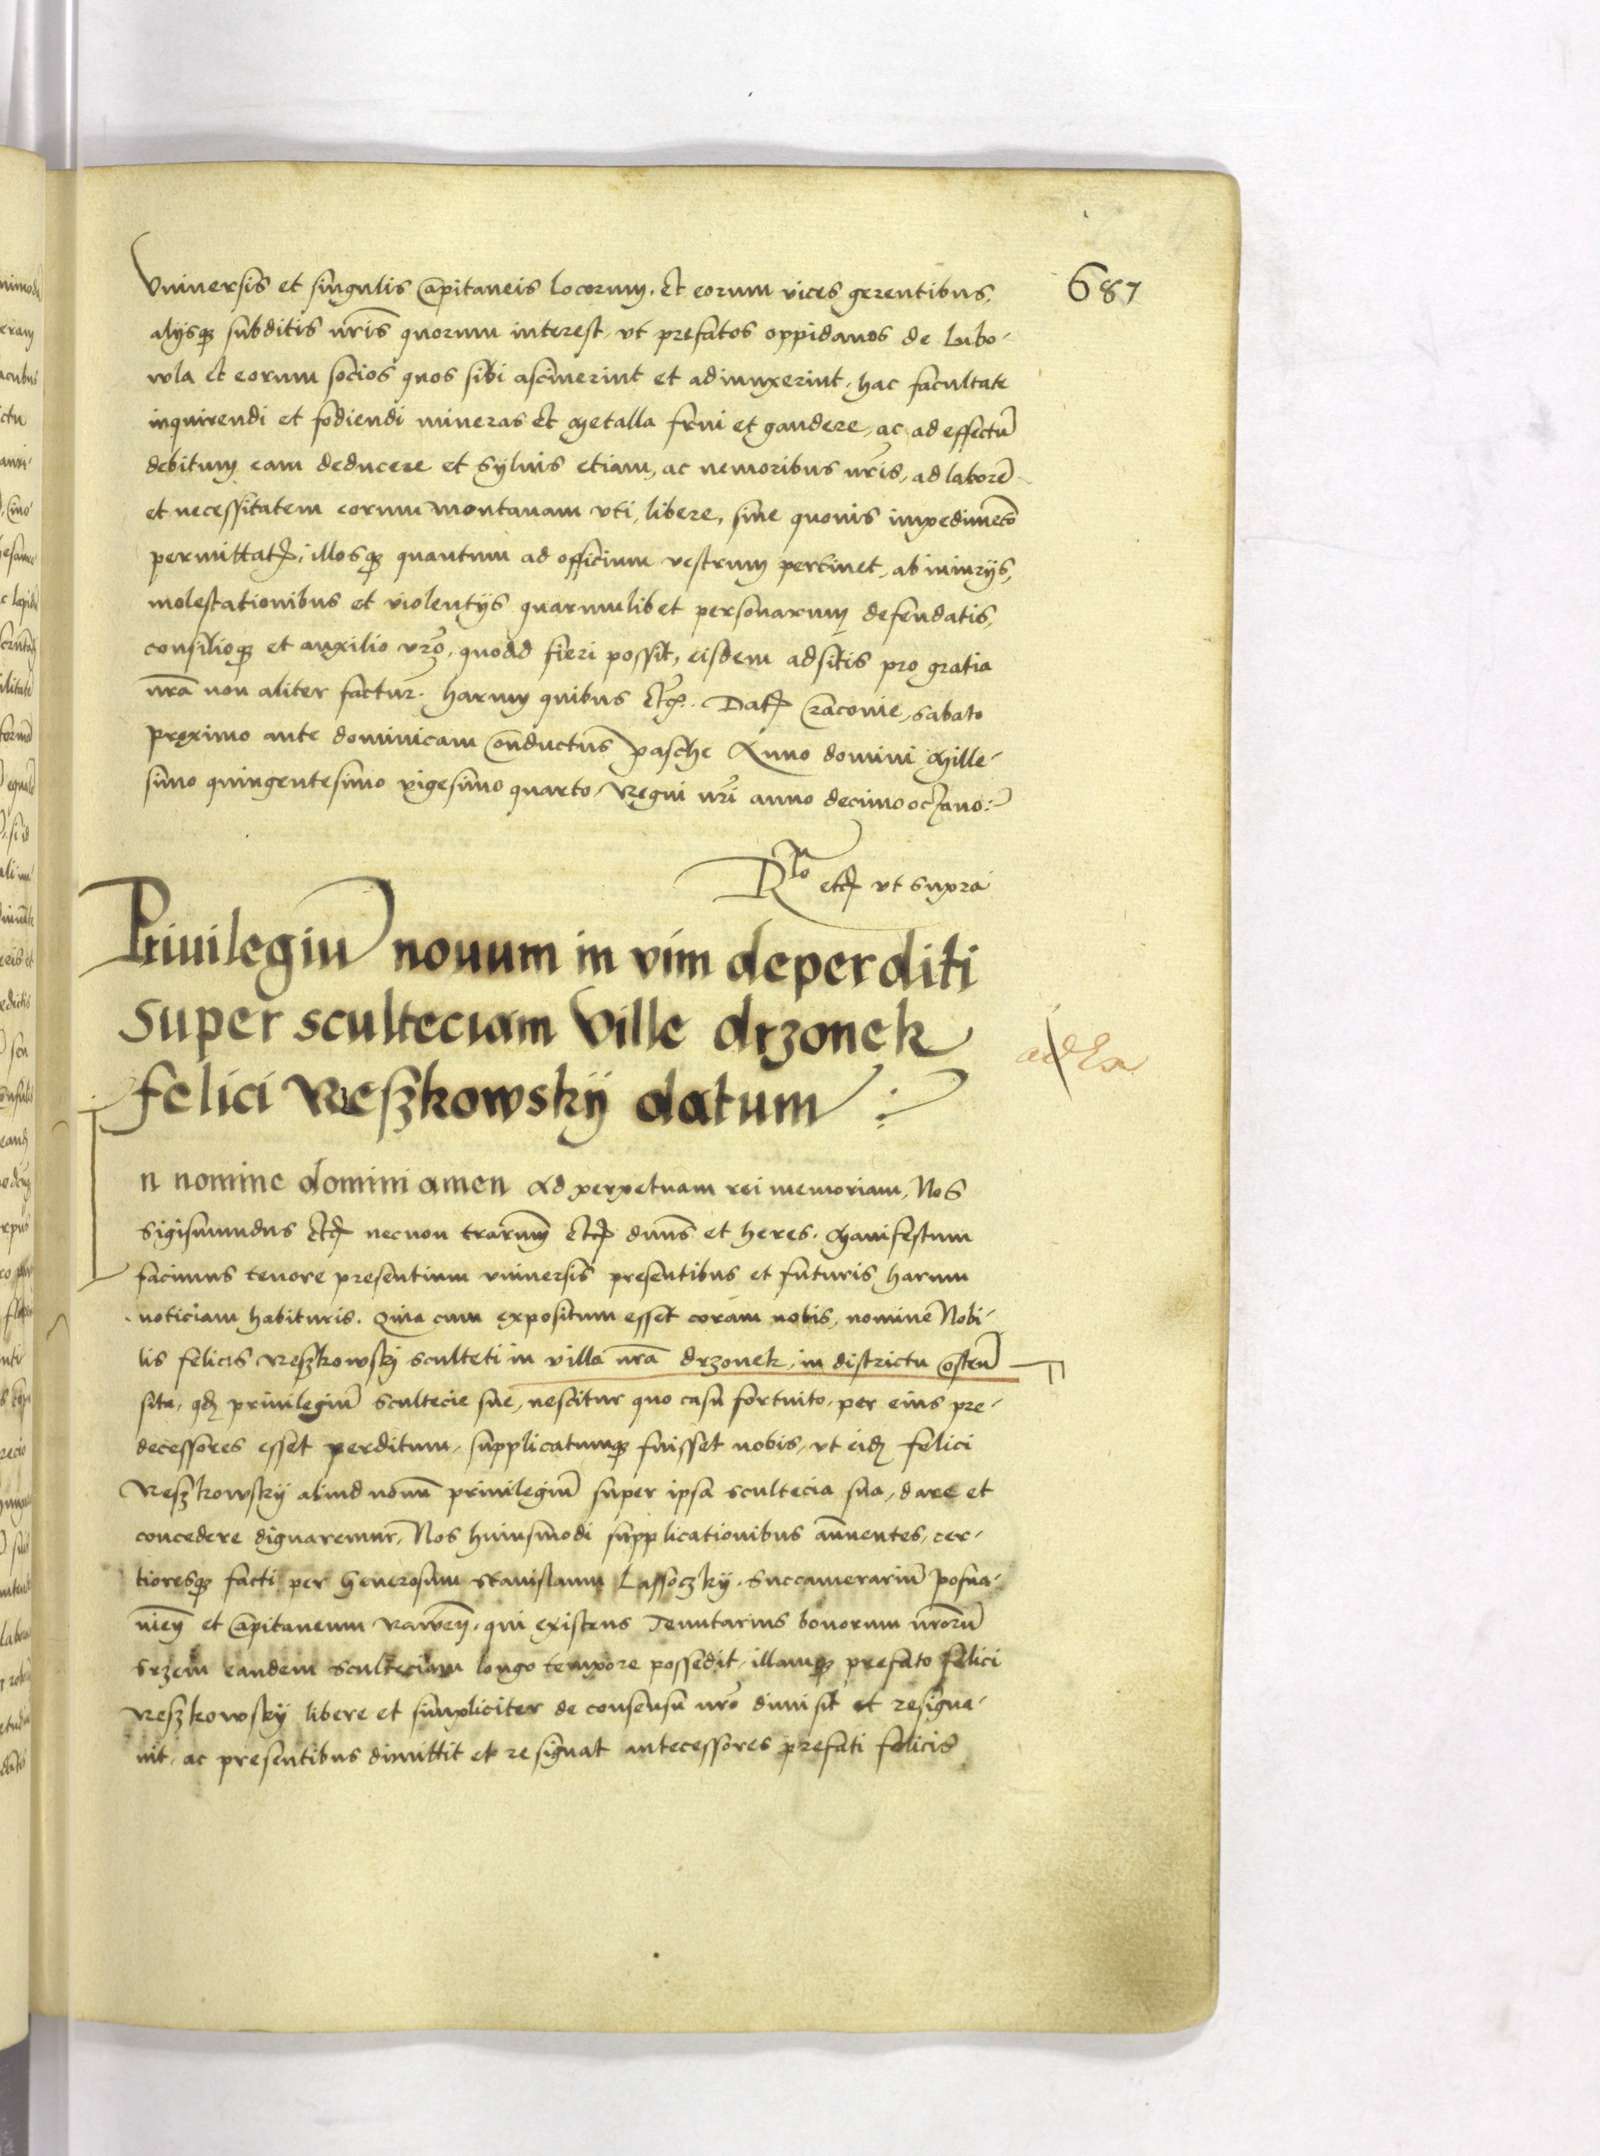 687
Vniuersis et singulis Capitaneis locorum. Et eorum vices gerentibus,
alijsq; subditis nr̄is quorum interest, vt prefatos oppidanos de Lubo-
wla Et eorum socios quos sibi asciuerint et adiunxerint, hac facultate
inquirendi et fodiendi mineras Et Metalla frui et gaudere, ac ad effectū
debitum eam deducere et Syluis etiam, ac nemoribus nr̄is, ad laborē
et necessitatem eorum Montanam vti, libere, sine quouis impedimēto
permittatis, illosq; quantum ad officium vestrum pertinet, ab iniurijs,
molestationibus et violentijs quarumlibet personarum defendatis,
consilioq; et auxilio vr̄o, quoad fieri possit, eisdem adsitis pro gratia
nr̄a non aliter factur. harum quibus Etc. Dat Cracouie, Sabato
proximo ante dominicam Conductus pasche Anno domini Mille-
simo quingentesimo vigesimo quarto, Regni nr̄i anno decimooctauo:
Rlo etc vt supra
Priuilegiū nouum in vim deperditi
super scultetiam Ville drzonek
felici Reszkowskÿ datum
In nomine domini amen Ad perpetuam rei memoriam, Nos
Sigismundus Etc necnon trarum Etc dnns et heres. Manifestum
facimus tenore presentium vniuersis presentibus et futuris harum
noticiam habituris. Quia cum expositum esset coram nobis, nomine Nobi-
lis felicis Reszkowskj sculteti in villa nr̄a drzonek, in districtu Costen
sita, qd priuilegiū scultecie sue, nescitur quo casu fortuito, per eius pre-
decessores esset perditum, supplicatumq; fuisset nobis, vt eid felici
Reszkowskÿ aliud nouū priuilegiū super ipsa scultecia sua, dare et
concedere dignaremur, Nos huiusmodi supplicationibus annuentes, cer-
tioresq; facti per Generosum Stanislaum Lassoczkÿ, Succamerariū Posna-
nien et Capitaneum Rawen, qui existens Tenutarius bonorum nr̄orū
Srzem eandem scultetiam longo tempore possedit, illamq; prefato felici
Reszkowskÿ libere et simpliciter de consensu nr̄o dimisit et resigna-
uit, ac presentibus dimittit et resignat antecessores prefati felicis